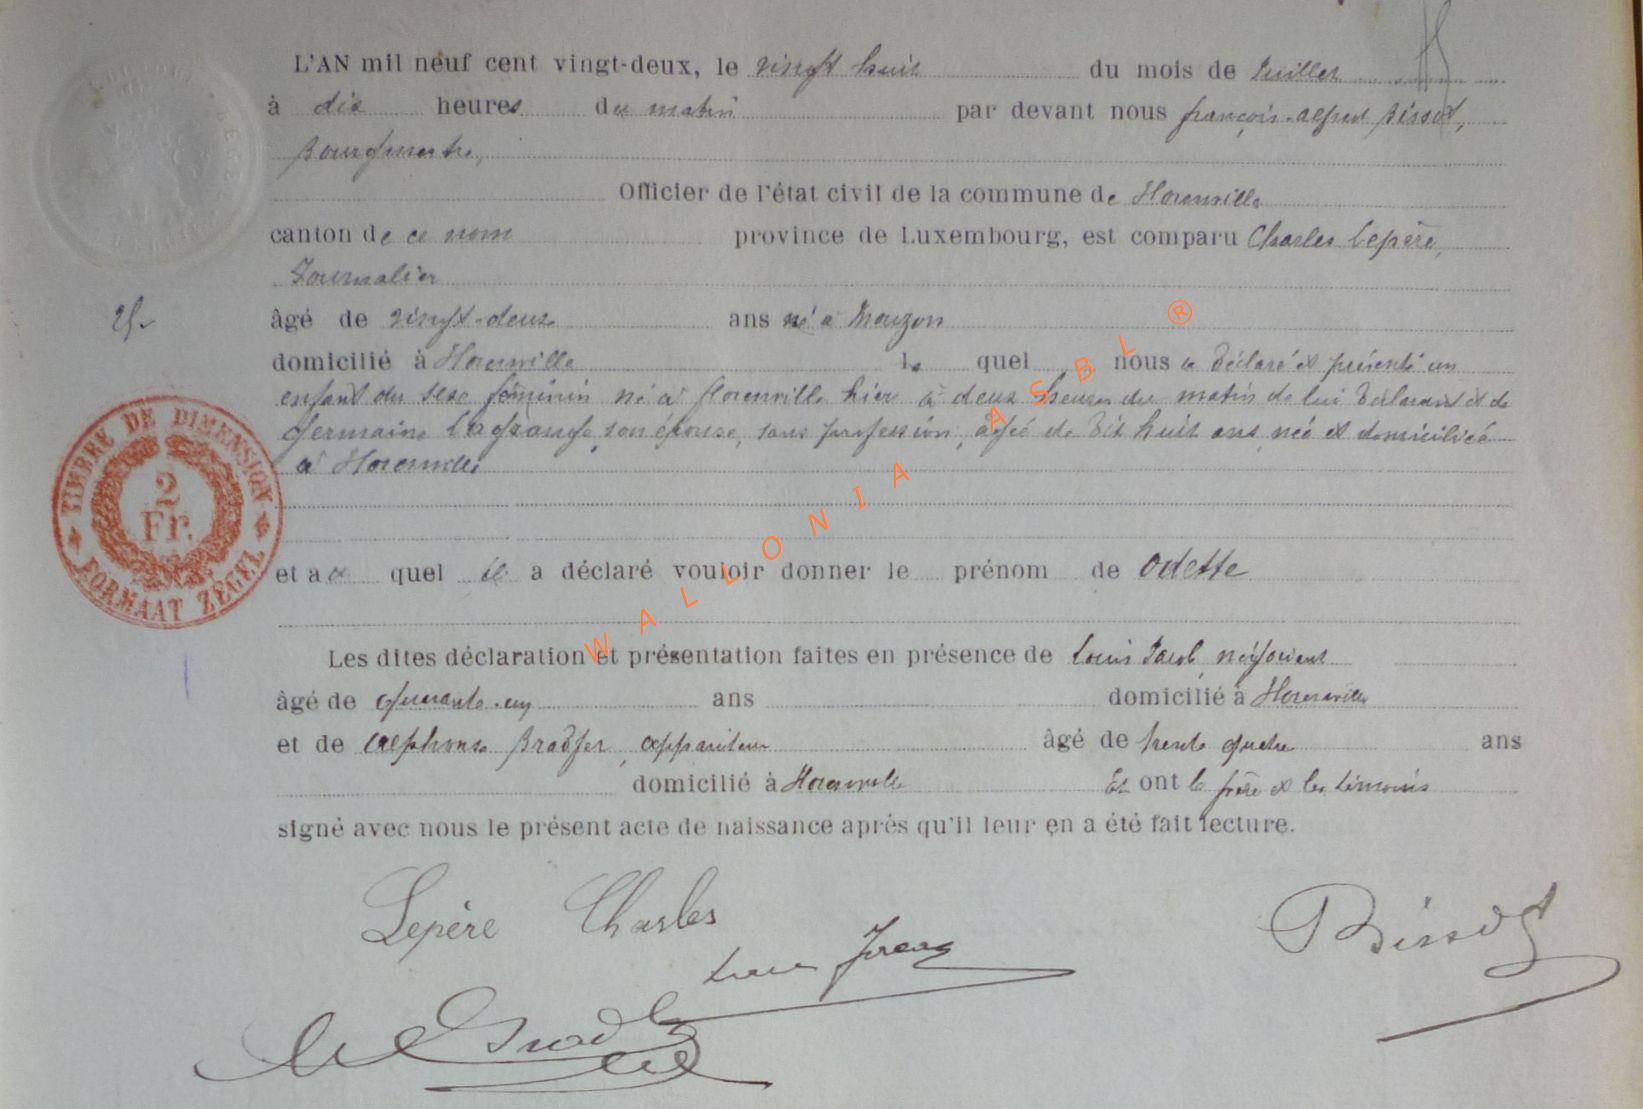 L'AN mil neuf cent vingt-deux, le vingt huit du mois de Juillet
à dix heures du matin par devant nous françois-alfred Bissot,
Bourgmestre,
Officier de l'état civil de la commune de Florenville
canton de ce nom province de Luxembourg, est comparu Charles Lepère,
Journalier
âgé de vingt-deux ans né à Mouzon
domicilié à Florenville le quel nous a déclaré et présenté un
enfant du sexe féminin né à florenville hier à deux heures du matin de lui déclarant et de
Germaine Lagrange, son épouse, sans profession, agée de dix huit ans, née et domiciliée
à Florenville
et au quel il a déclaré vouloir donner le prénom de Odette
Les dites déclaration et présentation faites en présence de Louis Jacob, négociant
âgé de quarante-un ans domicilié à Florenville
et de Alphonse Bradfer, appariteur âgé de trente quatre ans
domicilié à Florenville Et ont le père et les témoins
signé avec nous le présent acte de naissance après qu'il leur en a été fait lecture.
Lepère Charles
Bissot
TIMBRE DE DIMENSION
2
Fr.
FORMAAT ZEGEL
WALLONIA ASBL ®